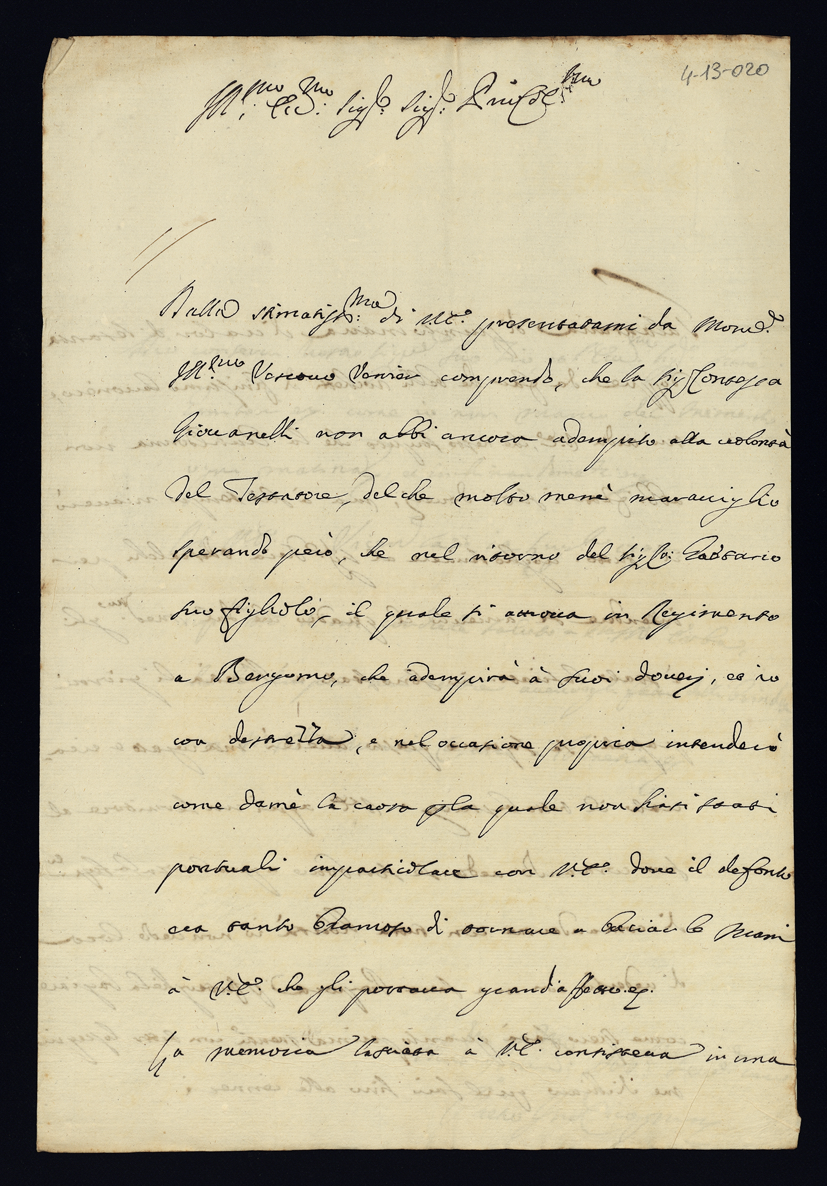 4-13-020
Ill:mo Ecc:mo Sig:r Sig:r Pron Col:mo
Dalla stimatiss:ma di V.E. presentatami da Mons:r
Ill:mo Vescovo Venier comprendo, che la Sig:ra Contessa
Giovanelli non abbi ancora adempito alla volontà
del Testatore, del che molto menè maraviglio
sperando però, che nel ritorno del sig:r
suo figliolo, il quale si attrova in Regimento
a Bergamo, che adempirà à suoi doveri, et io
con destrezza, e nel occasione propria intenderò
come damè la causa p la quale non siasi stati
pontuali imparticolare con V.E. dove il defonto
era tanto bramoso di tornare a baciar le mani
à V.E. che gli portava grand'affetto.
La memoria lasciata à V.E. consisteva in una